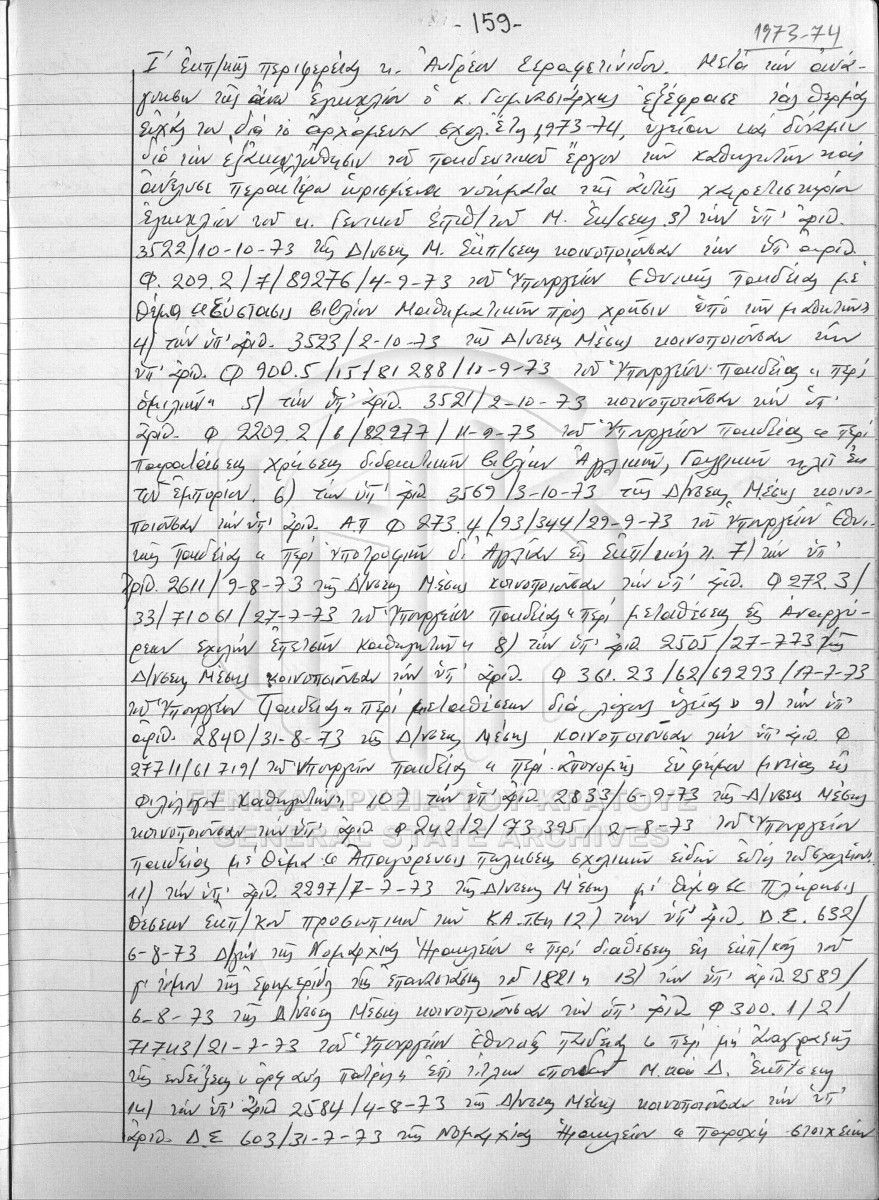 -159-
1973-74
Ι΄ ἐκπ/κῆς περιφερείας κ. Ἀνδρέου Σεραφετινίδου. Μετά τήν ἀνά-
γνωσιν τῆς ἄνω ἐγκυκλίου ὁ κ. Γυμνασιάρχης ἐξέφρασε τάς θερμάς
εὐχάς του διά τό ἀρχόμενον σχολ. ἔτος 1973-74, ὑγείαν καί δύναμιν
διά τήν ἐξακολούθησιν τοῦ παιδευτικοῦ ἔργου τῶν καθηγητῶν καί
ἀνέλυσε περαιτέρω ὡρισμένα νοήματα τῆς αὐτῆς χαιρετιστηρίου
ἐγκυκλίου τοῦ κ. Γενικοῦ Ἐπιθ/τοῦ Μ. Ἐκ/σεως 3) τήν ὑπ' ἀριθ.
3522/10-10-73 τῆς Δ/νσεως Μ. Ἐκπ/σεως κοινοποιοῦσαν τήν ὑπ' ἀριθ.
Φ. 209.2/7/89276/4-9-73 τοῦ Ὑπουργείου Ἐθνικῆς Παιδείας μέ
θέμα «Σύστασις βιβλίων Μαθηματικῶν πρός χρῆσιν ὑπό τῶν μαθητῶν»
4) τήν ὑπ' ἀριθ. 3523/2-10-73 τῆς Δ/νσεως Μέσης κοινοποιοῦσαν τήν
ὑπ' ἀριθ. Φ 900.5/15/81288/11-9-73 τοῦ Ὑπουργείου Παιδείας « περί
ὁμιλιῶν» 5) τήν ὑπ' ἀριθ. 3521/2-10-73 κοινοποιοῦσαν τήν ὑπ'
ἀριθ. Φ 2209.2/6/82977/11-9-73 τοῦ Ὑπουργείου Παιδείας « περί
παρατάσεως χρήσεως διδακτικῶν βιβλίων Ἀγγλικῆς, Γαλλικῆς κλπ ἐκ
τοῦ ἐμπορίου. 6) τήν ὑπ' ἀριθ 3569/3-10-73 τῆς Δ/νσεως Μέσης κοινο-
ποιοῦσαν τήν ὑπ' ἀριθ. Α.Π Φ 273.4/93/344/29-9-73 τοῦ Ὑπουργείου Ἐθνι-
κῆς Παιδείας « περί ὑποτροφιῶν δι' Ἀγγλίαν εἰς ἐκπ/κούς ». 7) τήν ὑπ'
ἀριθ. 2611/9-8-73 τῆς Δ/νσεως Μέσης κοινοποιοῦσαν τήν ὑπ' ἀριθ. Φ 272.3/
33/71061/27-7-73 τοῦ Ὑπουργείου Παιδείας « περί μεταθέσεως εἰς Ἀναργύ-
ρειον σχολήν Σπετσῶν καθηγητῶν» 8) τήν ὑπ' ἀριθ 2505/27-773 τῆς
Δ/νσεως Μέσης κοινοποιοῦσαν τήν ὑπ' ἀριθ. Φ 361.23/62/69293/17-7-73
τοῦ Ὑπουργείου Παιδείας « περί μεταθέσεων διά λόγους ὑγείας » 9) τήν ὑπ'
ἀριθ. 2840/31-8-73 τῆς Δ/νσεως Μέσης κοινοποιοῦσαν τήν ὑπ' ἀριθ. Φ
277/1/61719/ τοῦ Ὑπουργείου Παιδείας « περί ἀπονομῆς Εὐφήμου μνείας εἰς
Φιλόλογον καθηγητήν» 10) τήν ὑπ' ἀριθ 2833/6-9-73 τῆς Δ/νσεως Μέσης
κοινοποιοῦσαν τήν ὑπ' ἀριθ Φ 242/2/73395/2-8-73 τοῦ Ὑπουργείου
Παιδείας μέ θέμα « Ἀπαγόρευσις πωλήσεως σχολικῶν εἰδῶν ἐντός τοῦ σχολείου».
11) τήν ὑπ' ἀριθ. 2297/7-7-73 τῆς Δ/νσεως Μέσης μέ θέμα « Πλήρωσις
θέσεων ἐκπ/κοῦ προσωπικοῦ τῶν Κ.Α.Τ.Ε» 12) τήν ὑπ' ἀριθ. Δ.Ε. 632/
6-8-73 Δ/γήν τῆς Νομαρχίας Ἡρακλείου « περί διαθέσεως εἰς ἐκπ/κούς τοῦ
γ' τόμου τῆς ἐφημερίδος τῆς ἐπαναστάσεως τοῦ 1821» 13) τήν ὑπ' ἀριθ. 2589/
6-8-73 τῆς Δ/νσεως Μέσης κοινοποιοῦσαν τήν ὑπ' ἀριθ Φ 300.1/2/
71743/21-7-73 τοῦ Ὑπουργείου Ἐθνικῆς Παιδείας « περί μή ἀναγραφῆς
τῆς ἐνδείξεως « ὀρφανός πατρός» ἐπί τίτλων σπουδῶν Μ. καί Δ. Ἐκπ/σεως
14) τήν ὑπ' ἀριθ 2584/4-8-73 τῆς Δ/νσεως Μέσης κοινοποιοῦσαν τήν ὑπ'
ἀριθ. Δ.Ε 603/31-7-73 τῆς Νομαρχίας Ἡρακλείου « παροχή στοιχείων
ΓΕΝΙΚΑ ΑΡΧΕΙΑ ΤΟΥ ΚΡΑΤΟΥΣ
GENERAL STATE ARCHIVES